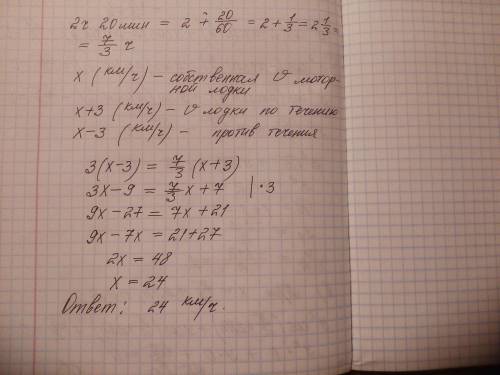 2ч 20мин = 2 + 20/60 = 2 + 1/3 = 2 1/3 =
= 7/3 ч
x (км/ч) – собственная v мотор-
ной лодки
x+3 (км/ч) – v лодки по течению
x-3 (км/ч) – против течения
3(x-3) = 7/3 (x+3)
3x-9 = 7/3 x + 7 | ·3
9x-27 = 7x+21
9x-7x = 21+27
2x = 48
x = 24
Ответ: 24 км/ч.